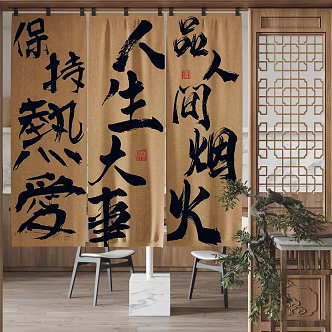 品人间烟火
人生大事
保持熱愛